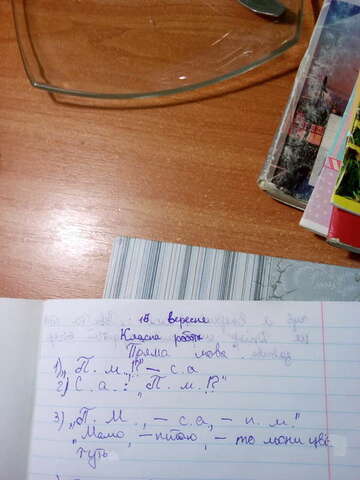 15 вересня
Класна робота
Пряма мова.
1) „П. м.!?" – с.а
2) С.а.: „П. м.!?"
3) „П. М., – с.а, – п. м."
„Мамо, – питаю, – то льони цві-
туть